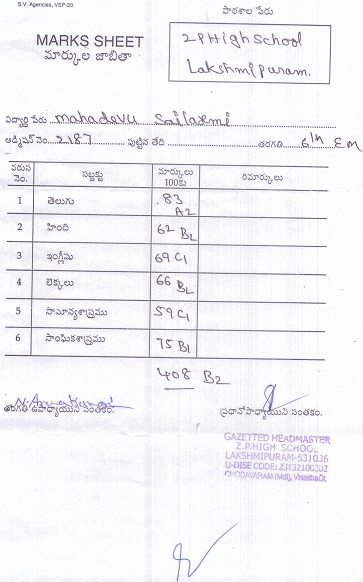 S.V. Agencies, VSP-20.
పాఠశాల పేరు
MARKS SHEET
మార్కుల జాబితా
Z P High School
Lakshmipuram.
విద్యార్థి పేరు mahadevu Sailaxmi
అడ్మిషన్ నెం. 2187 పుట్టిన తేది తరగతి 6th E M
వరుస నెం. సబ్జక్టు మార్కులు 100కు రిమార్కులు
1 తెలుగు 83 A2
2 హింది 62 B2
3 ఇంగ్లీషు 69 C1
4 లెక్కలు 66 B2
5 సామాన్యశాస్త్రము 59 C1
6 సాంఘికశాస్త్రము 75 B1
408 B2
తరగతి ఉపాధ్యాయుని సంతకం. ప్రధానోపాధ్యాయుని సంతకం.
GAZETTED HEADMASTER
Z.P.HIGH SCHOOL
LAKSHMIPURAM-531036
U-DISE CODE:
CHODAVARAM (Mdl), Visakha Dt.